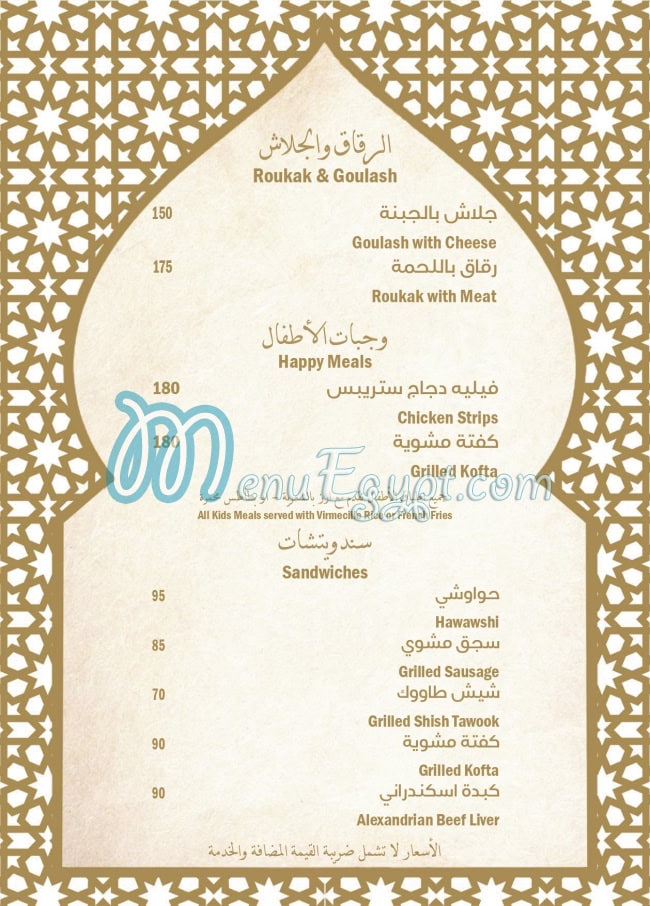 الرقاق والجلاش
Roukak & Goulash
150 جلاش بالجبنة
Goulash with Cheese
175 رقاق باللحمة
Roukak with Meat
وجبات الأطفال
Happy Meals
180 فيليه دجاج ستريبس
Chicken Strips
180 كفتة مشوية
Grilled Kofta
MenuEgypt.com
All Kids Meals served with Virmecilli Rice or French Fries
سندويتشات
Sandwiches
95 حواوشي
Hawawshi
85 سجق مشوي
Grilled Sausage
70 شيش طاووك
Grilled Shish Tawook
90 كفتة مشوية
Grilled Kofta
90 كبدة اسكندراني
Alexandrian Beef Liver
الأسعار لا تشمل ضريبة القيمة المضافة والخدمة